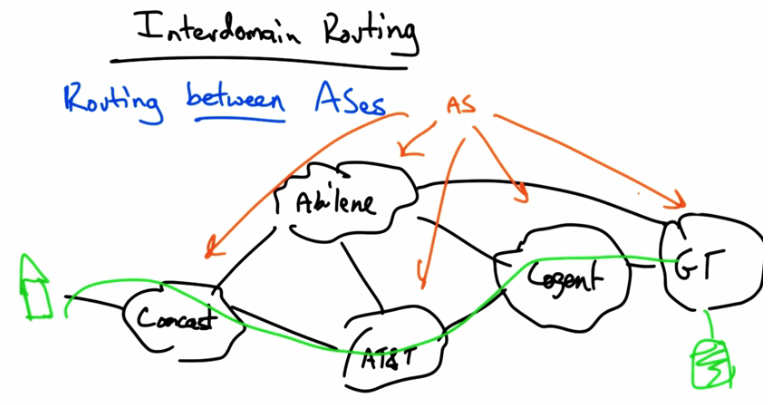 Interdomain Routing
Routing between ASes
AS
Abilene
Cogent
GT
Comcast
AT&T